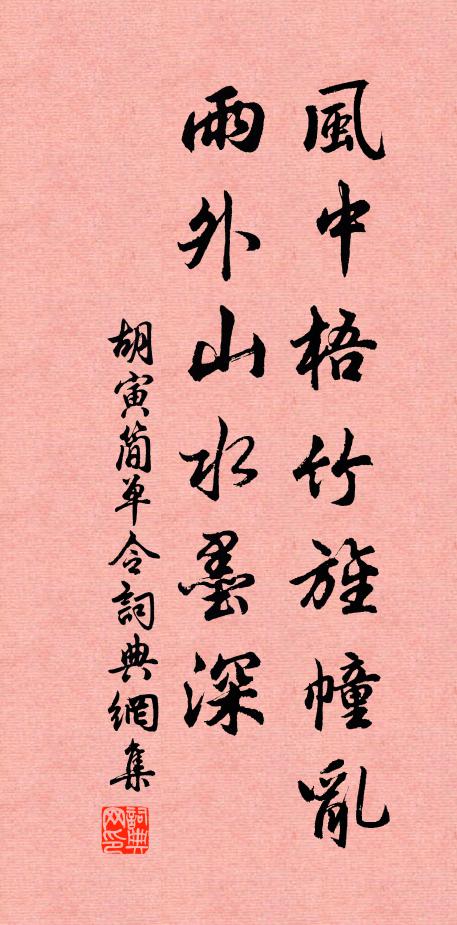 風中梧竹旌幢亂
雨外山水墨深
胡寅简单令詞典網集
詞典网印